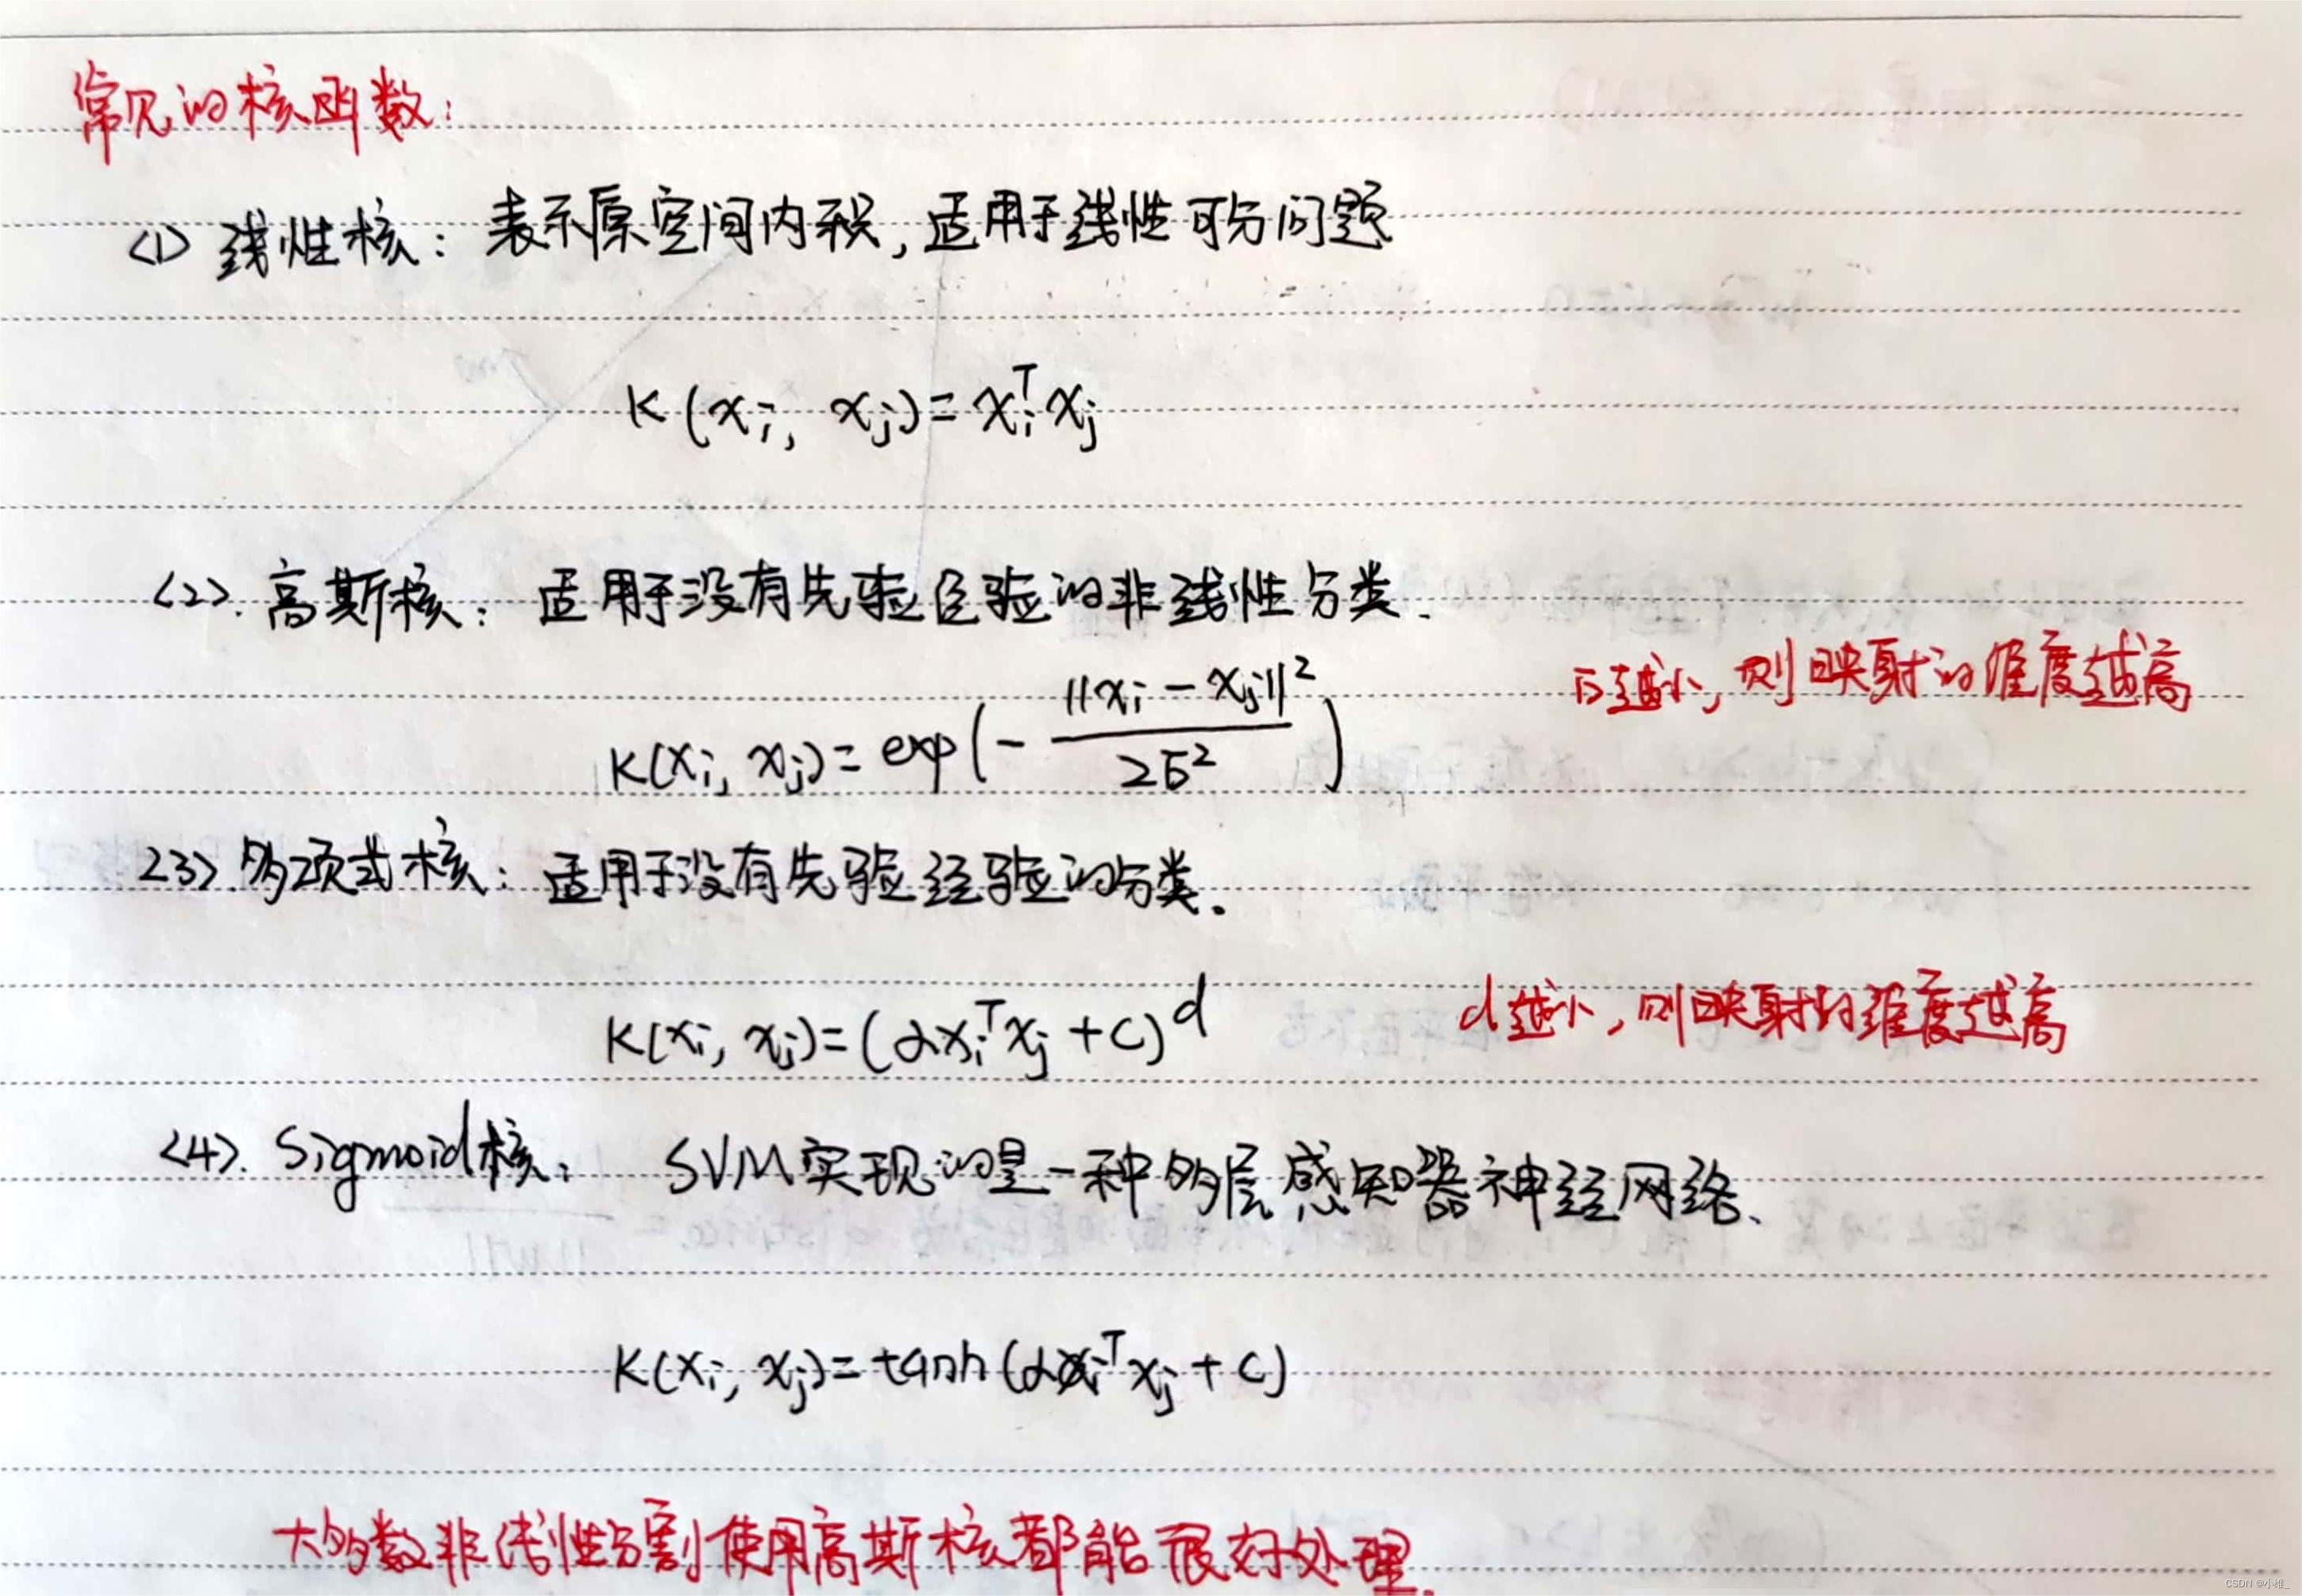 常见的核函数：
<1> 线性核：表示原空间内积，适用于线性可分问题
K(xi, xj) = xi^T xj
<2>. 高斯核：适用于没有先验经验的非线性分类.
σ越小，则映射的维度越高
K(xi, xj) = exp(- ||xi - xj||² / 2σ²)
<3>. 多项式核：适用于没有先验经验的分类.
K(xi, xj) = (αxi^T xj + c)^d
d越小，则映射的维度越高
<4>. Sigmoid核：SVM实现的是一种多层感知器神经网络、
K(xi, xj) = tanh(αxi^T xj + c)
大多数非线性分割使用高斯核都能很好处理.
CSDN @小稚_